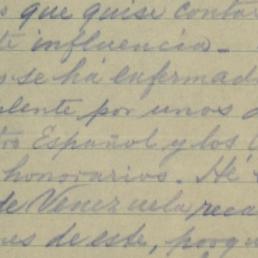 que quise contar
influencia.-
se há enfermado
por unos
Español y los
honorarios. Hé
de Venezuela reca
de este, porqu